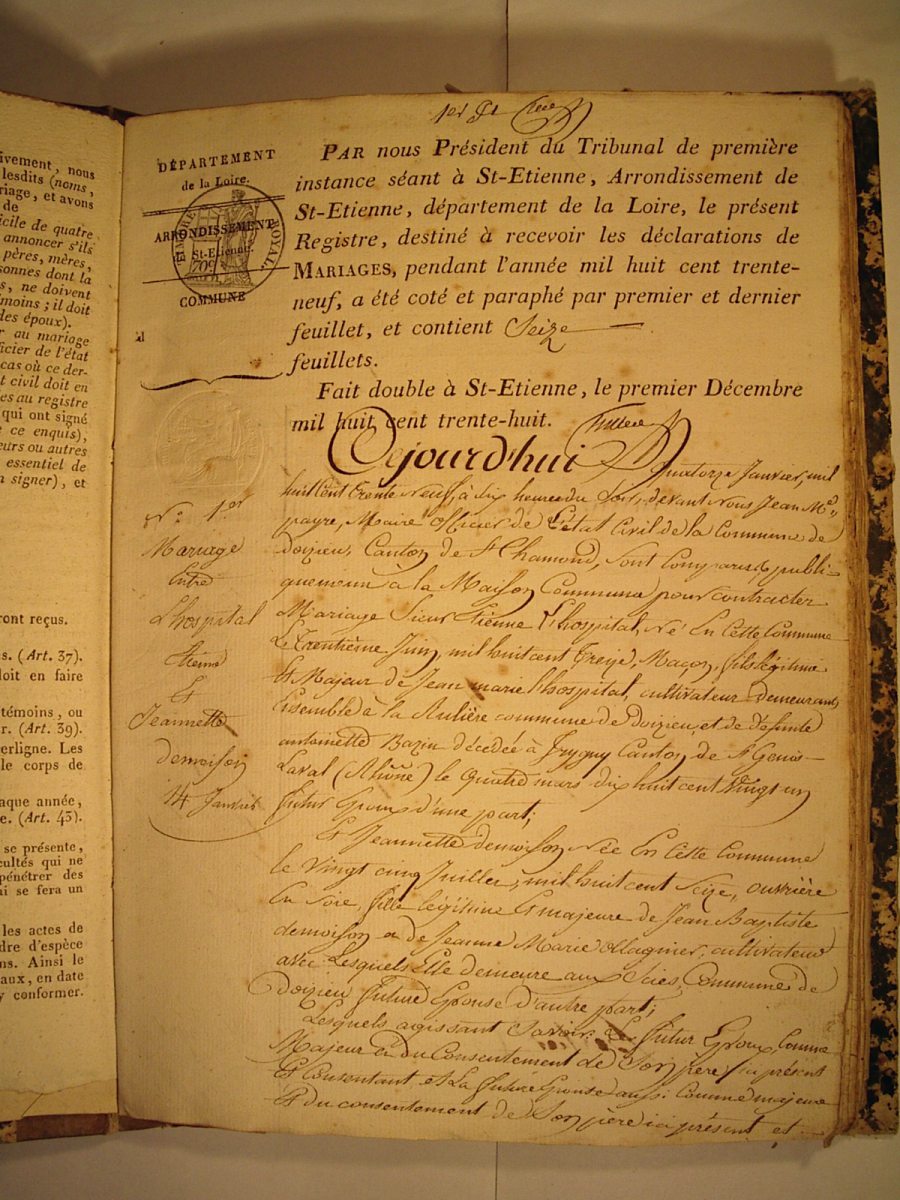 ivement, nous
lesdits (noms,
riage, et avons
de
icile de quatre
annoncer s'ils
pères, mères,
sonnes dont la
s, ne doivent
moins; il doit
des époux).
r au mariage
ficier de l'état
cas où ce der-
t civil doit en
es au registre
qui ont signé
ce enquis),
eurs ou autres
essentiel de
n signer), et
ront reçus.
s. (Art. 37).
doit en faire
témoins, ou
r. (Art. 39).
erligne. Les
le corps de
aque année,
e. (Art. 43).
se présente,
cultés qui ne
pénétrer des
ui se fera un
les actes de
dre d'espèce
ns. Ainsi le
aux, en date
y conformer.
1er
DÉPARTEMENT
de la Loire.
ARRONDISSEMENT
St-Etienne.
COMMUNE
TIMBRE ROYAL
PAR nous Président du Tribunal de première
instance séant à St-Etienne, Arrondissement de
St-Etienne, département de la Loire, le présent
Registre, destiné à recevoir les déclarations de
MARIAGES, pendant l'année mil huit cent trente-
neuf, a été coté et paraphé par premier et dernier
feuillet, et contient Seize
feuillets.
Fait double à St-Etienne, le premier Décembre
mil huit cent trente-huit.
N.° 1.er
Mariage
Entre
L'hospital
Etienne
Et
Jeannette
demoison
14 Janvier
Cejourd'hui Quatorze Janvier, mil
huit Cent Trente Neuf, à dix heures du Soir, devant Nous Jean M.
payre, Maire Officier de l'état Civil de la Commune de
Doizieu, Canton de St Chamond, sont Comparus publi-
quement à la Maison Commune pour contracter
Mariage Sieur Etienne L'hospital, Né En Cette Commune
Le Trentième Juin, mil huit cent Treize, Maçon, fils légitime
Et Majeur de Jean marie l'hospital, cultivateur demeurant
Ensemble à la commune de Doizieu, et de défunte
antoinette Bazin décédée à Irygny Canton de St Genis-
Laval (Rhône) le quatre mars dix huit cent vingt un
futur Epoux d'une part;
Et Jeannette demoison Née En Cette Commune
le Vingt cinq Juillet, mil huit cent Seize, ouvrière
En Soie, fille légitime Et majeure de Jean Baptiste
demoison et de Jeanne Marie ollagnier, cultivateur
avec Lesquels Elle demeure aux Scies, Commune de
Doizieu future Epouse d'autre part;
Lesquels agissant Savoir: Le futur Epoux, Comme
Majeur Et du Consentement de Son père ici présent
Et Consentant, et La future Epouse aussi Comme majeure
Et du consentement de Son père ici présent et